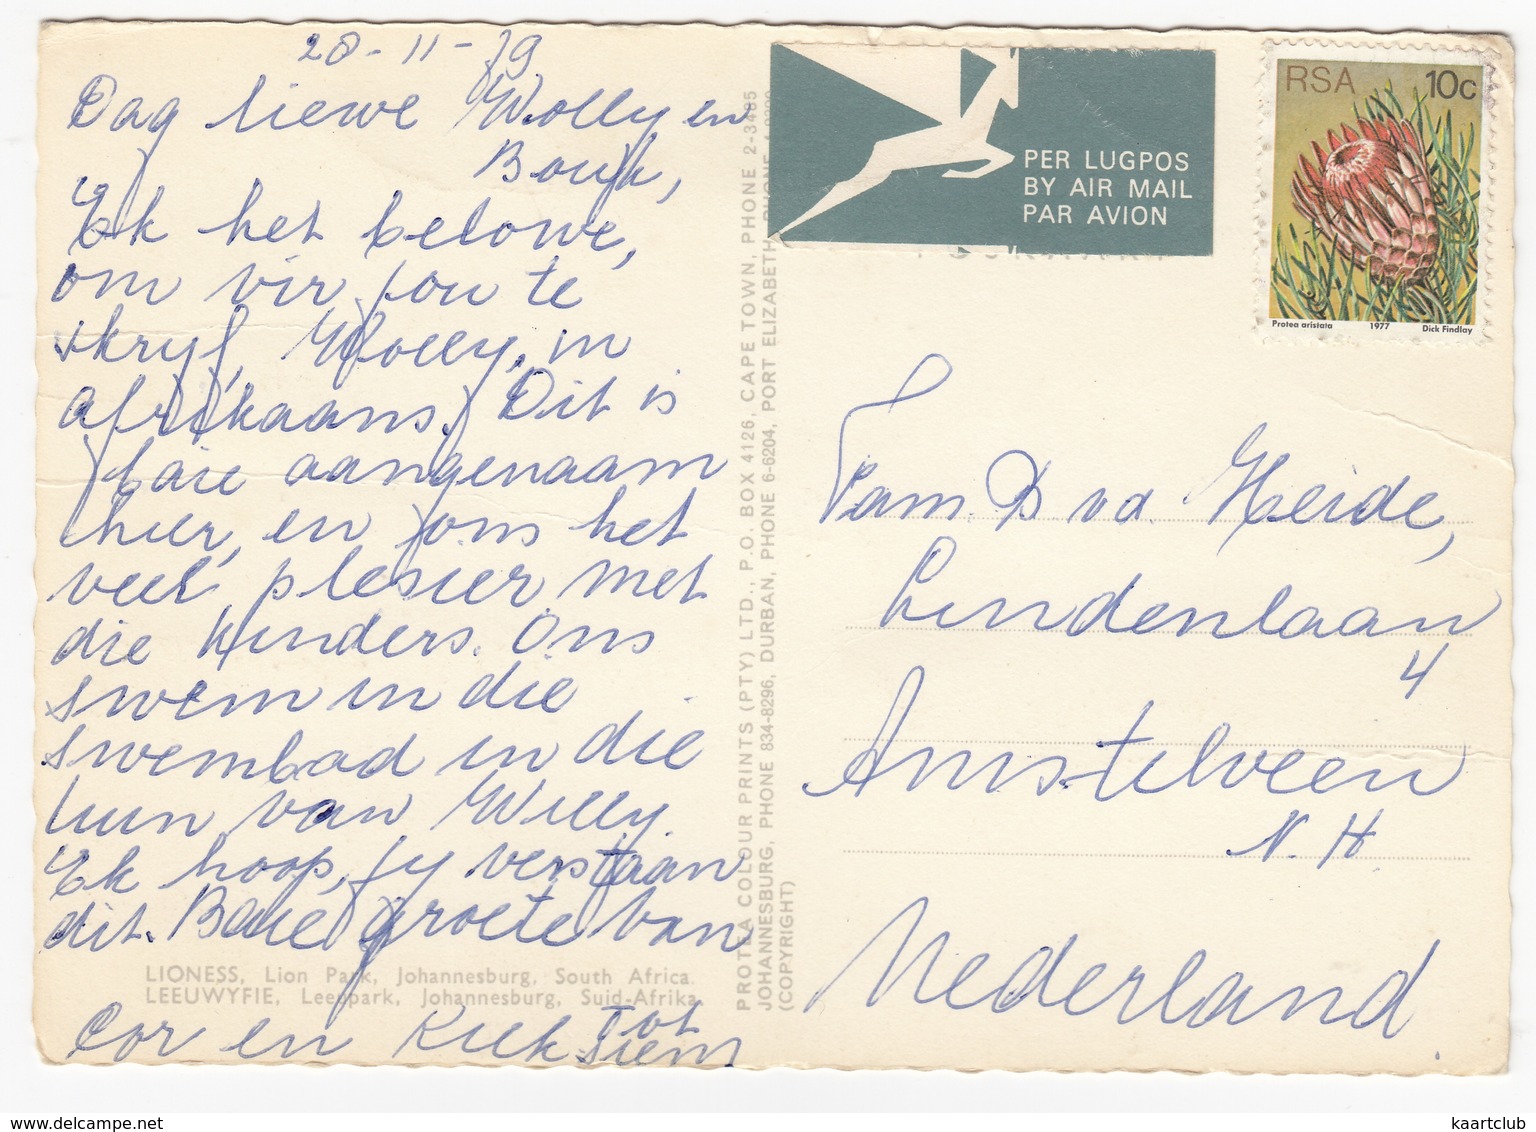 28-11-79
Dag liewe Wolly en
Boujk,
Ek het belowe,
om vir jou te
skryf, Wolly, in
afrikaans. Dit is
baie aangenaam
hier, en ons het
veel plesier met
die kinders. Ons
swem in die
swembad in die
tuin van Willy.
Ek hoop, jy verstaan
dit. Baie groete van
Cor en Riek
Tot
siens
LIONESS, Lion Park, Johannesburg, South Africa.
LEEUWYFIE, Leeupark, Johannesburg, Suid-Afrika
PROTEA COLOUR PRINTS (PTY) LTD., P.O. BOX 4126, CAPE TOWN, PHONE 2-3485
JOHANNESBURG, PHONE 834-8296, DURBAN, PHONE 6-6204, PORT ELIZABETH, PHONE
(COPYRIGHT)
PER LUGPOS
BY AIR MAIL
PAR AVION
RSA 10c
Protea aristata 1977 Dick Findlay
Fam. D. v.d. Heide,
Lindenlaan
4
Amstelveen
N.H
Nederland.
kaartclub